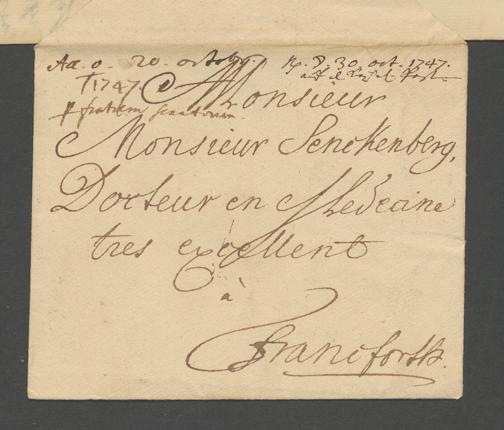 Aa. o. 20. octobr.
1747.
R. d. 30. oct. 1747.
p fratrem
Monsieur
Monsieur Senckenberg,
Docteur en Medecine
tres excellent
à
Francforth.